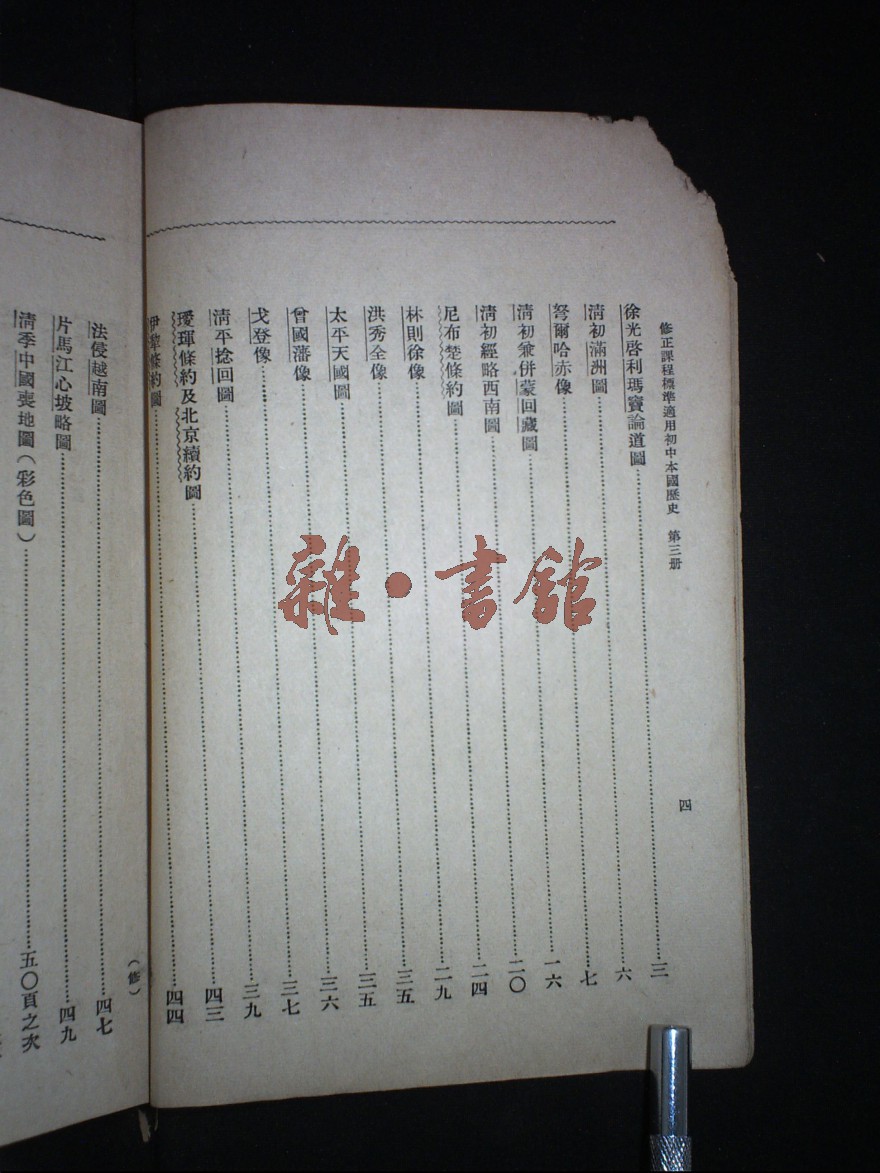 修正課程標準適用初中本國歷史　第三册
四
徐光啓利瑪竇論道圖……三
清初滿洲圖……六
弩爾哈赤像……七
清初兼併蒙回藏圖……一六
清初經略西南圖……二〇
尼布楚條約圖……二四
林則徐像……二九
洪秀全像……三五
太平天國圖……三五
曾國藩像……三六
戈登像……三七
清平捻回圖……三九
璦琿條約及北京續約圖……四三
伊犂條約圖……四四
（修）
法侵越南圖……四七
片馬江心坡略圖……四九
清季中國喪地圖（彩色圖）……五〇頁之次
雜·書館